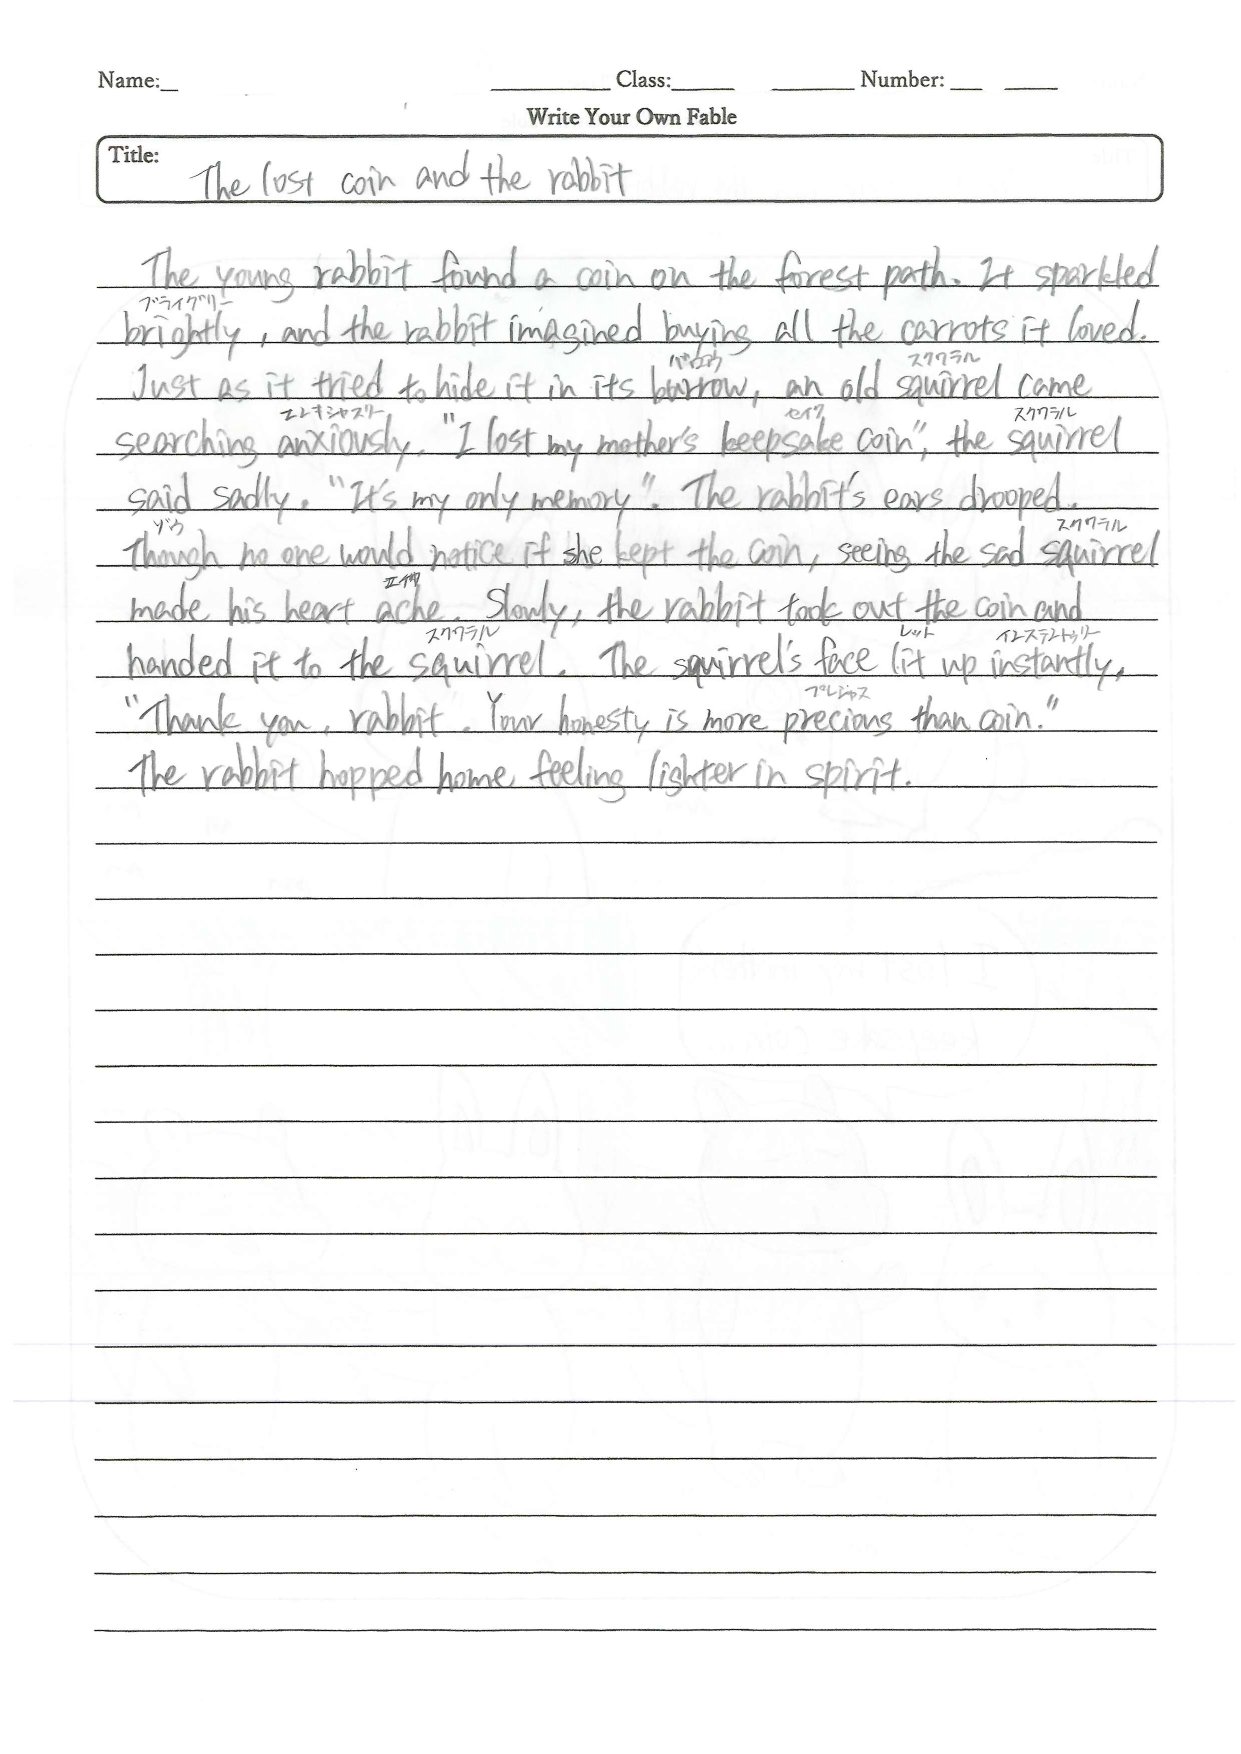 Name:_ ________ Class:_____ ______ Number: __ ____
Write Your Own Fable
Title: The lost coin and the rabbit
The young rabbit found a coin on the forest path. It sparkled
ブライグリー
brightly, and the rabbit imagined buying all the carrots it loved.
バウロウ スクワラル
Just as it tried to hide it in its burrow, an old squirrel came
エンキシャスリー セイク スクワラル
searching anxiously. "I lost my mother's keepsake coin", the squirrel
said sadly. "It's my only memory". The rabbit's ears drooped.
ゾウ スクワラル
Though no one would notice if she kept the coin, seeing the sad squirrel
エイク
made his heart ache. Slowly, the rabbit took out the coin and
スクワラル レット インスタントゥリー
handed it to the squirrel. The squirrel's face lit up instantly,
プレシャス
"Thank you, rabbit. Your honesty is more precious than coin."
The rabbit hopped home feeling lighter in spirit.